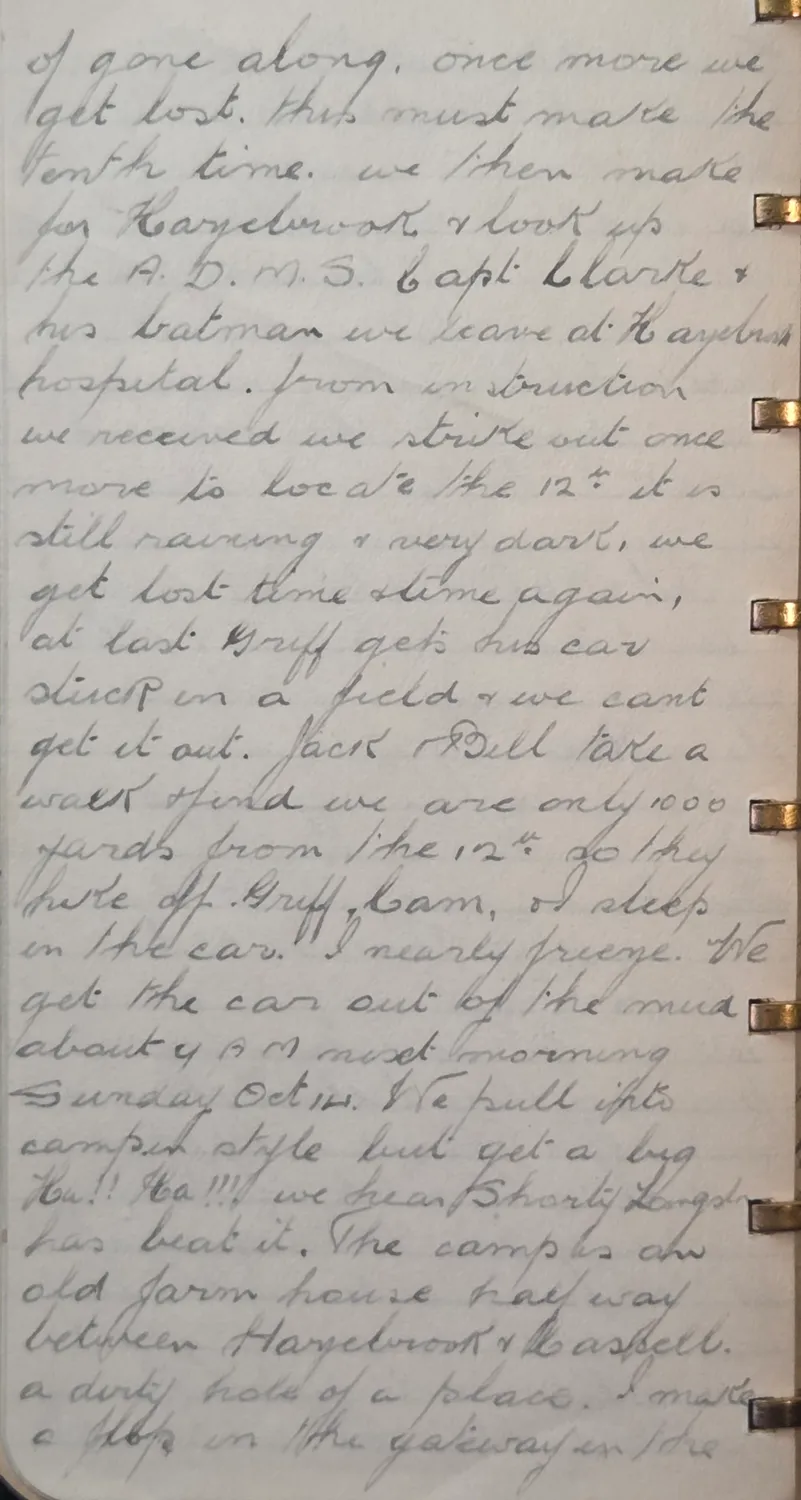 of gone along. once more we
get lost. this must make the
tenth time. we then make
for Hazebrook & look up
the A. D. M. S. Capt Clarke &
his batman we leave at Hazebrook
hospital. from instruction
we received we strike out once
more to locate the 12th it is
still raining & very dark, we
get lost time & time again,
at last Griff gets his car
stuck in a field & we cant
get it out. Jack & Bill take a
walk & find we are only 1000
yards from the 12th so they
hike off. Griff, Cam, & I sleep
in the car. I nearly freeze. We
get the car out of the mud
about 4 A M next morning
Sunday Oct 14. We pull into
camp in style but get a big
Ha!! Ha!!! we hear Shorty
has beat it. The camp is an
old farm house half way
between Hazebrook & Cassell.
a dirty hole of a place. I make
a flop in the gateway in the